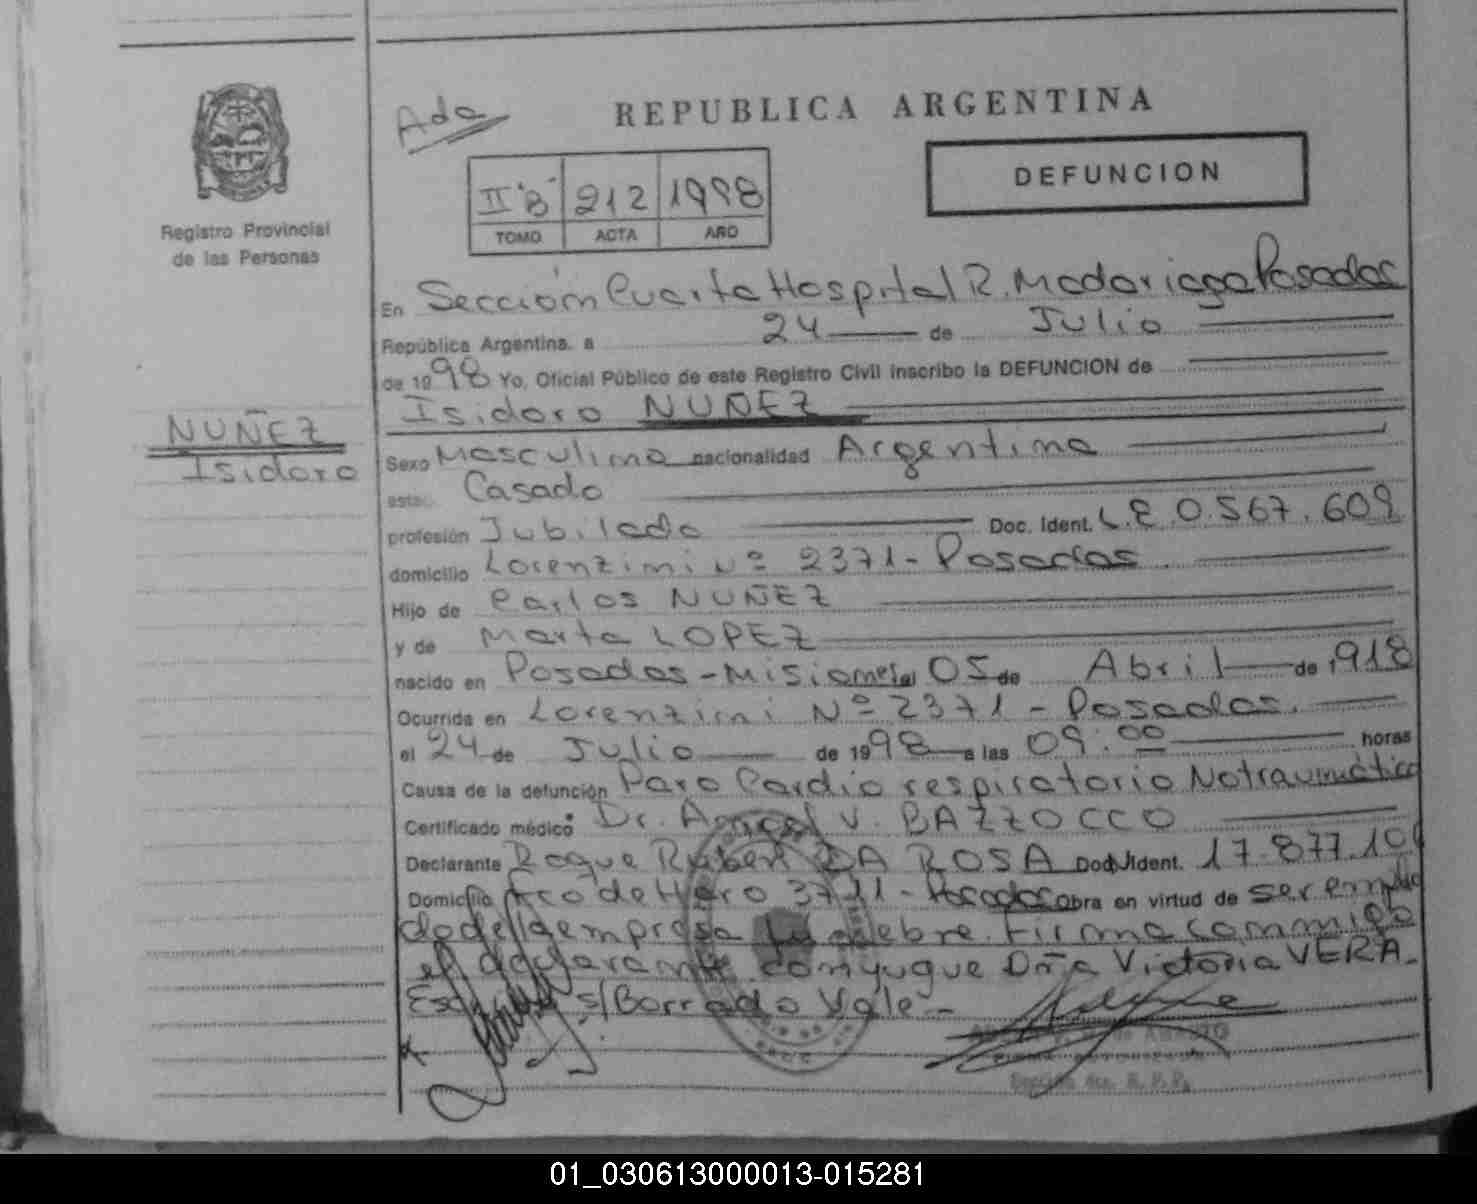 Ada
REPUBLICA ARGENTINA
II "B" 212 1998
TOMO ACTA AÑO
DEFUNCION
Registro Provincial
de las Personas
En Sección Cuarta Hospital R. Madariaga Posadas
República Argentina, a 24 de Julio
de 1998 Yo, Oficial Público de este Registro Civil inscribo la DEFUNCION de
Isidoro NUÑEZ
NUÑEZ
Isidoro
Sexo Masculino nacionalidad Argentina
esta Casado
profesión Jubilado Doc. Ident. L.E 0.567.609
domicilio Lorenzini Nº 2371 - Posadas
Hijo de Carlos NUÑEZ
y de Marta LOPEZ
nacido en Posadas - Misiones el 05 de Abril de 1918
Ocurrida en Lorenzini Nº 2371 - Posadas.
el 24 de Julio de 1998 a las 09:00 horas
Causa de la defunción Paro Cardio respiratorio No traumático
Certificado médico Dr. V. BAZZOCCO
Declarante Roque Ruben DA ROSA Doc. Ident. 17.877.10
Domicilio 3711 - Posadas obra en virtud de ser emplea
do de la empresa fúnebre. Firma conmigo
el declarante. conyugue Dña Victoria VERA.
s/Borrado Vale -
Sección 4ta. R.P.P.
01_030613000013-015281